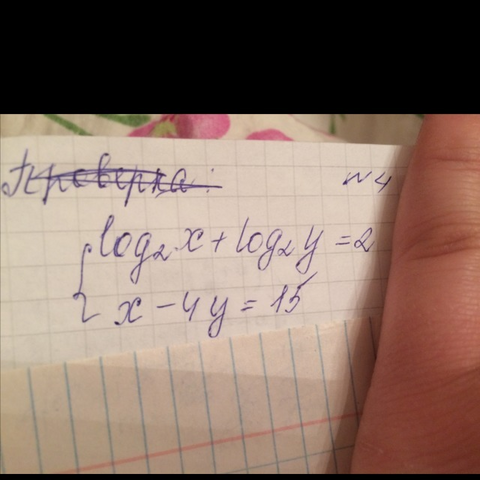 Проверка:
№4
log₂x + log₂y = 2
x - 4y = 15